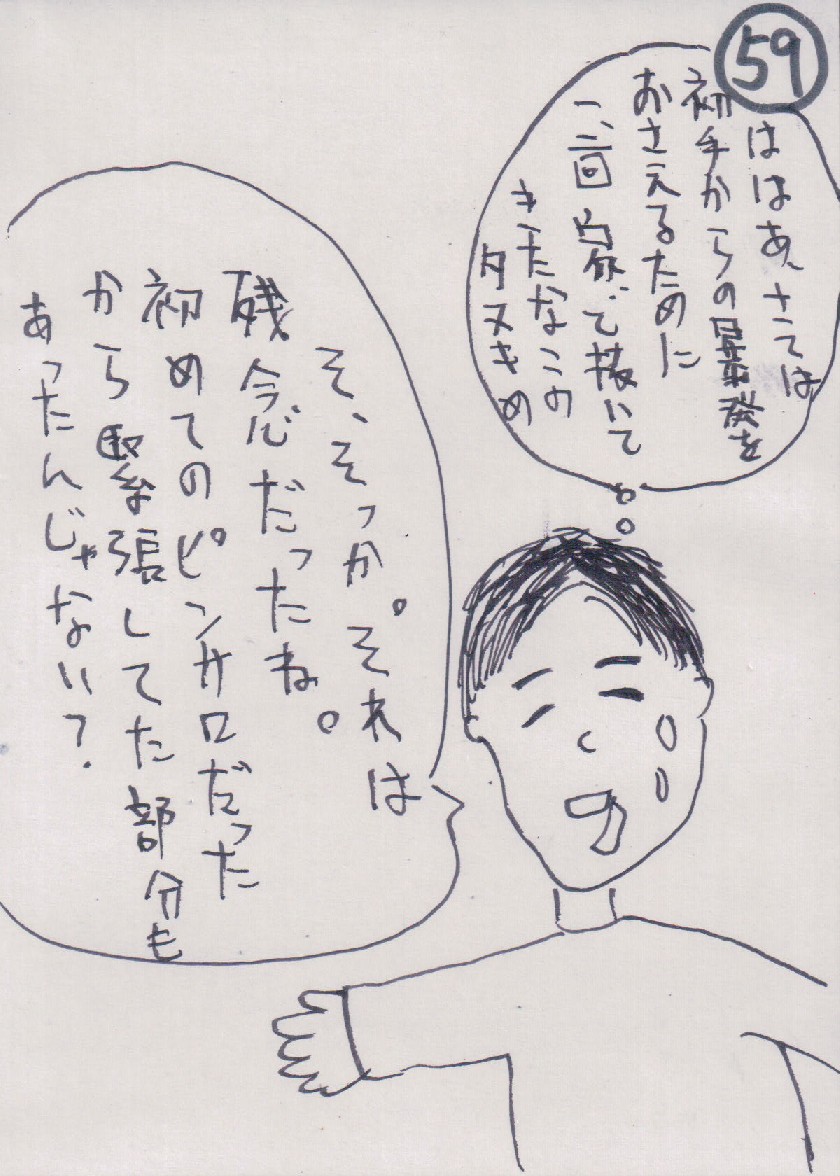 59
ははあ、さては
初手からの暴発を
おさえるために
一、二回 家で抜いて
きたなこの
タヌキめ
そ、そっか。それは
残念だったね。
初めてのピンサロだった
から緊張してた部分も
あったんじゃない?